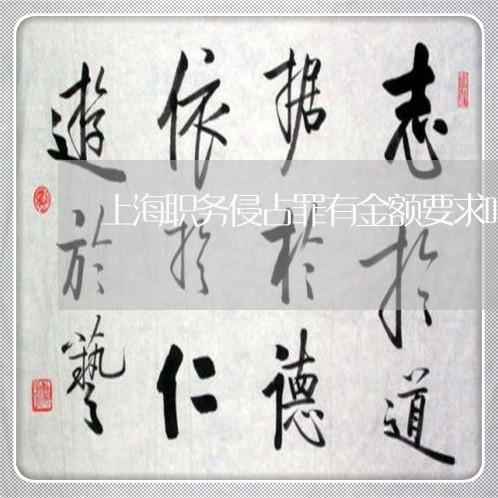 志於道
据於德
依於仁
遊於藝
上海职务侵占罪有金额要求